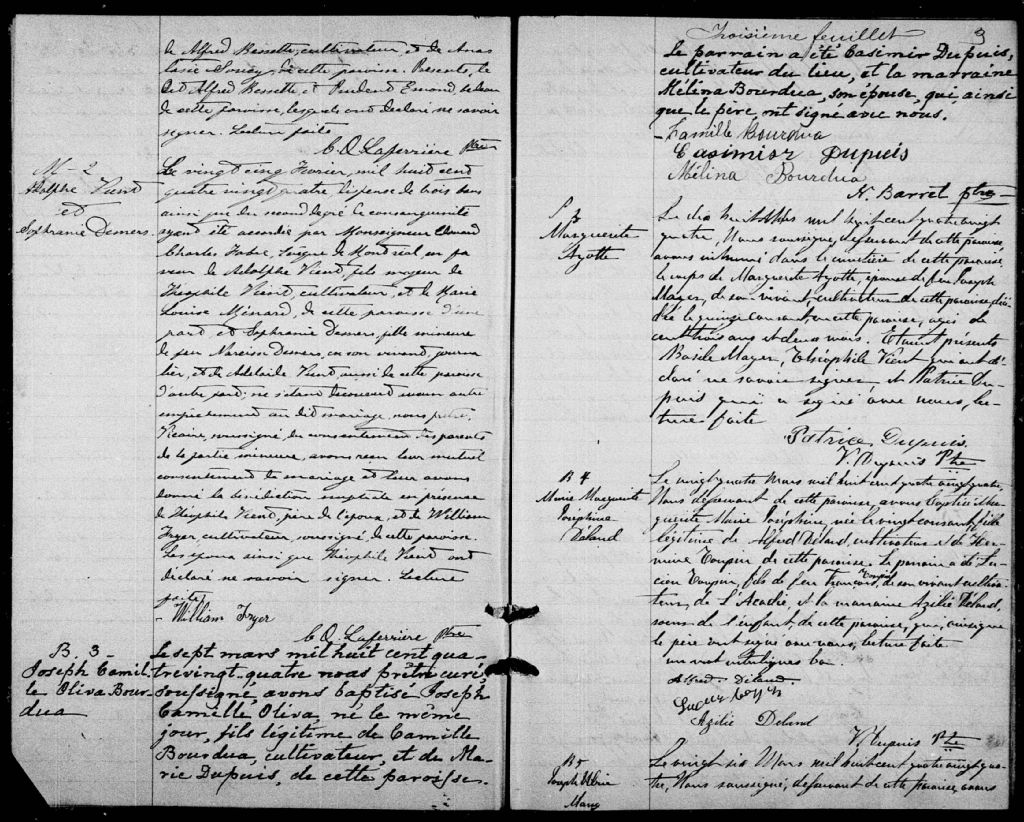 de Alfred Bessette, cultivateur, et de Anas
tasie Soucy, de cette paroisse. Présents, le
dit Alfred Bessette et Prudent Emond, bedeau
de cette paroisse, lesquels ont déclaré ne savoir
signer. Lecture faite
C. O. Laferrière Ptre
M - 2
Adolphe Vient
et
Sophranie Demers.
Le vingt cinq Fevrier, mil huit cent
quatre vingt quatre, dispense de trois bans
ainsi que du second degré de consanguinité
ayant été accordée par Monseigneur Edouard
Charles Fabre, Evêque de Montréal, en fa
veur de Adolphe Vient, fils majeur de
Théophile Vient, cultivateur, et de Marie
Louise Ménard, de cette paroisse d'une
part, et Sophranie Demers, fille mineure
de feu Narcisse Demers, en son vivant, journa
lier, et de Adelaide Vient aussi de cette paroisse
d'autre part; ne s'étant découvert aucun autre
empêchement au dit mariage, nous prêtre
Vicaire, soussigné, du consentement des parents
de la partie mineure, avons reçu leur mutuel
consentement de mariage et leur avons
donné la bénédiction nuptiale en présence
de Théophile Vient, père de l'époux, et de William
Fryer, cultivateur, soussigné, de cette paroisse.
Les époux ainsi que Théophile Vient ont
déclaré ne savoir signer. Lecture
faite
- William Fryer
C. O. Laferrière Ptre
B. 3 -
Joseph Camil-
le Oliva Bour-
dua
Le sept mars mil huit cent qua-
trevingt quatre nous prêtre curé
soussigné avons baptisé Joseph
Camille, Oliva, né le même
jour, fils légitime de Camille
Bourdua, cultivateur, et de Ma-
rie Dupuis, de cette paroisse.
Troisième feuillet 3
Le parrain a été Casimir Dupuis,
cultivateur du lieu, et la marraine
Mélina Bourdua, son épouse, qui ainsi
que le père, ont signé avec nous.
Camille Bourdua
Casimir Dupuis
Mélina Bourdua
N. Barret ptre
S 3
Marguerite
Ayotte
Le dix huit Mars mil huit cent quatre vingt
quatre, Nous soussigné, desservant de cette paroisse,
avons inhumé dans le cimetière de cette paroisse
le corps de Marguerite Ayotte, épouse de feu Joseph
Mayer, de son vivant, cultivateur de cette paroisse, décé
dée le quinze courant, en cette paroisse, agée de
cent trois ans et deux mois. Étaient présents
Basile Mayer, Théophile Vient qui ont dé
claré ne savoir signer, et Patrice Du
puis qui a signé avec nous, lec-
ture faite
Patrice Dupuis
V. Dupuis Ptre
B 4
Marie Marguerite
Joséphine
Deland
Le vingt quatre Mars mil huit cent quatre vingt quatre,
Nous desservant de cette paroisse, avons baptisé Mar
guerite Marie Joséphine, née le vingt courant, fille
légitime de Alfred Deland, cultivateur et de Her
mine Toupin de cette paroisse. Le parrain a été Lu
cien Toupin, fils de feu François Toupin, de son vivant cultiva
teur, de L'Acadie, et la marraine Azilie Deland,
soeur de l'enfant, de cette paroisse, qui ainsi que
le père ont signé avec nous, lecture faite
un mot interligné bon.
Alfred. Deland.
Azilie Deland
V. Dupuis Ptre
B 5
Joseph
Mary
Le vingt six Mars mil huit cent quatre vingt qua-
tre, Nous soussigné, desservant de cette paroisse, avons